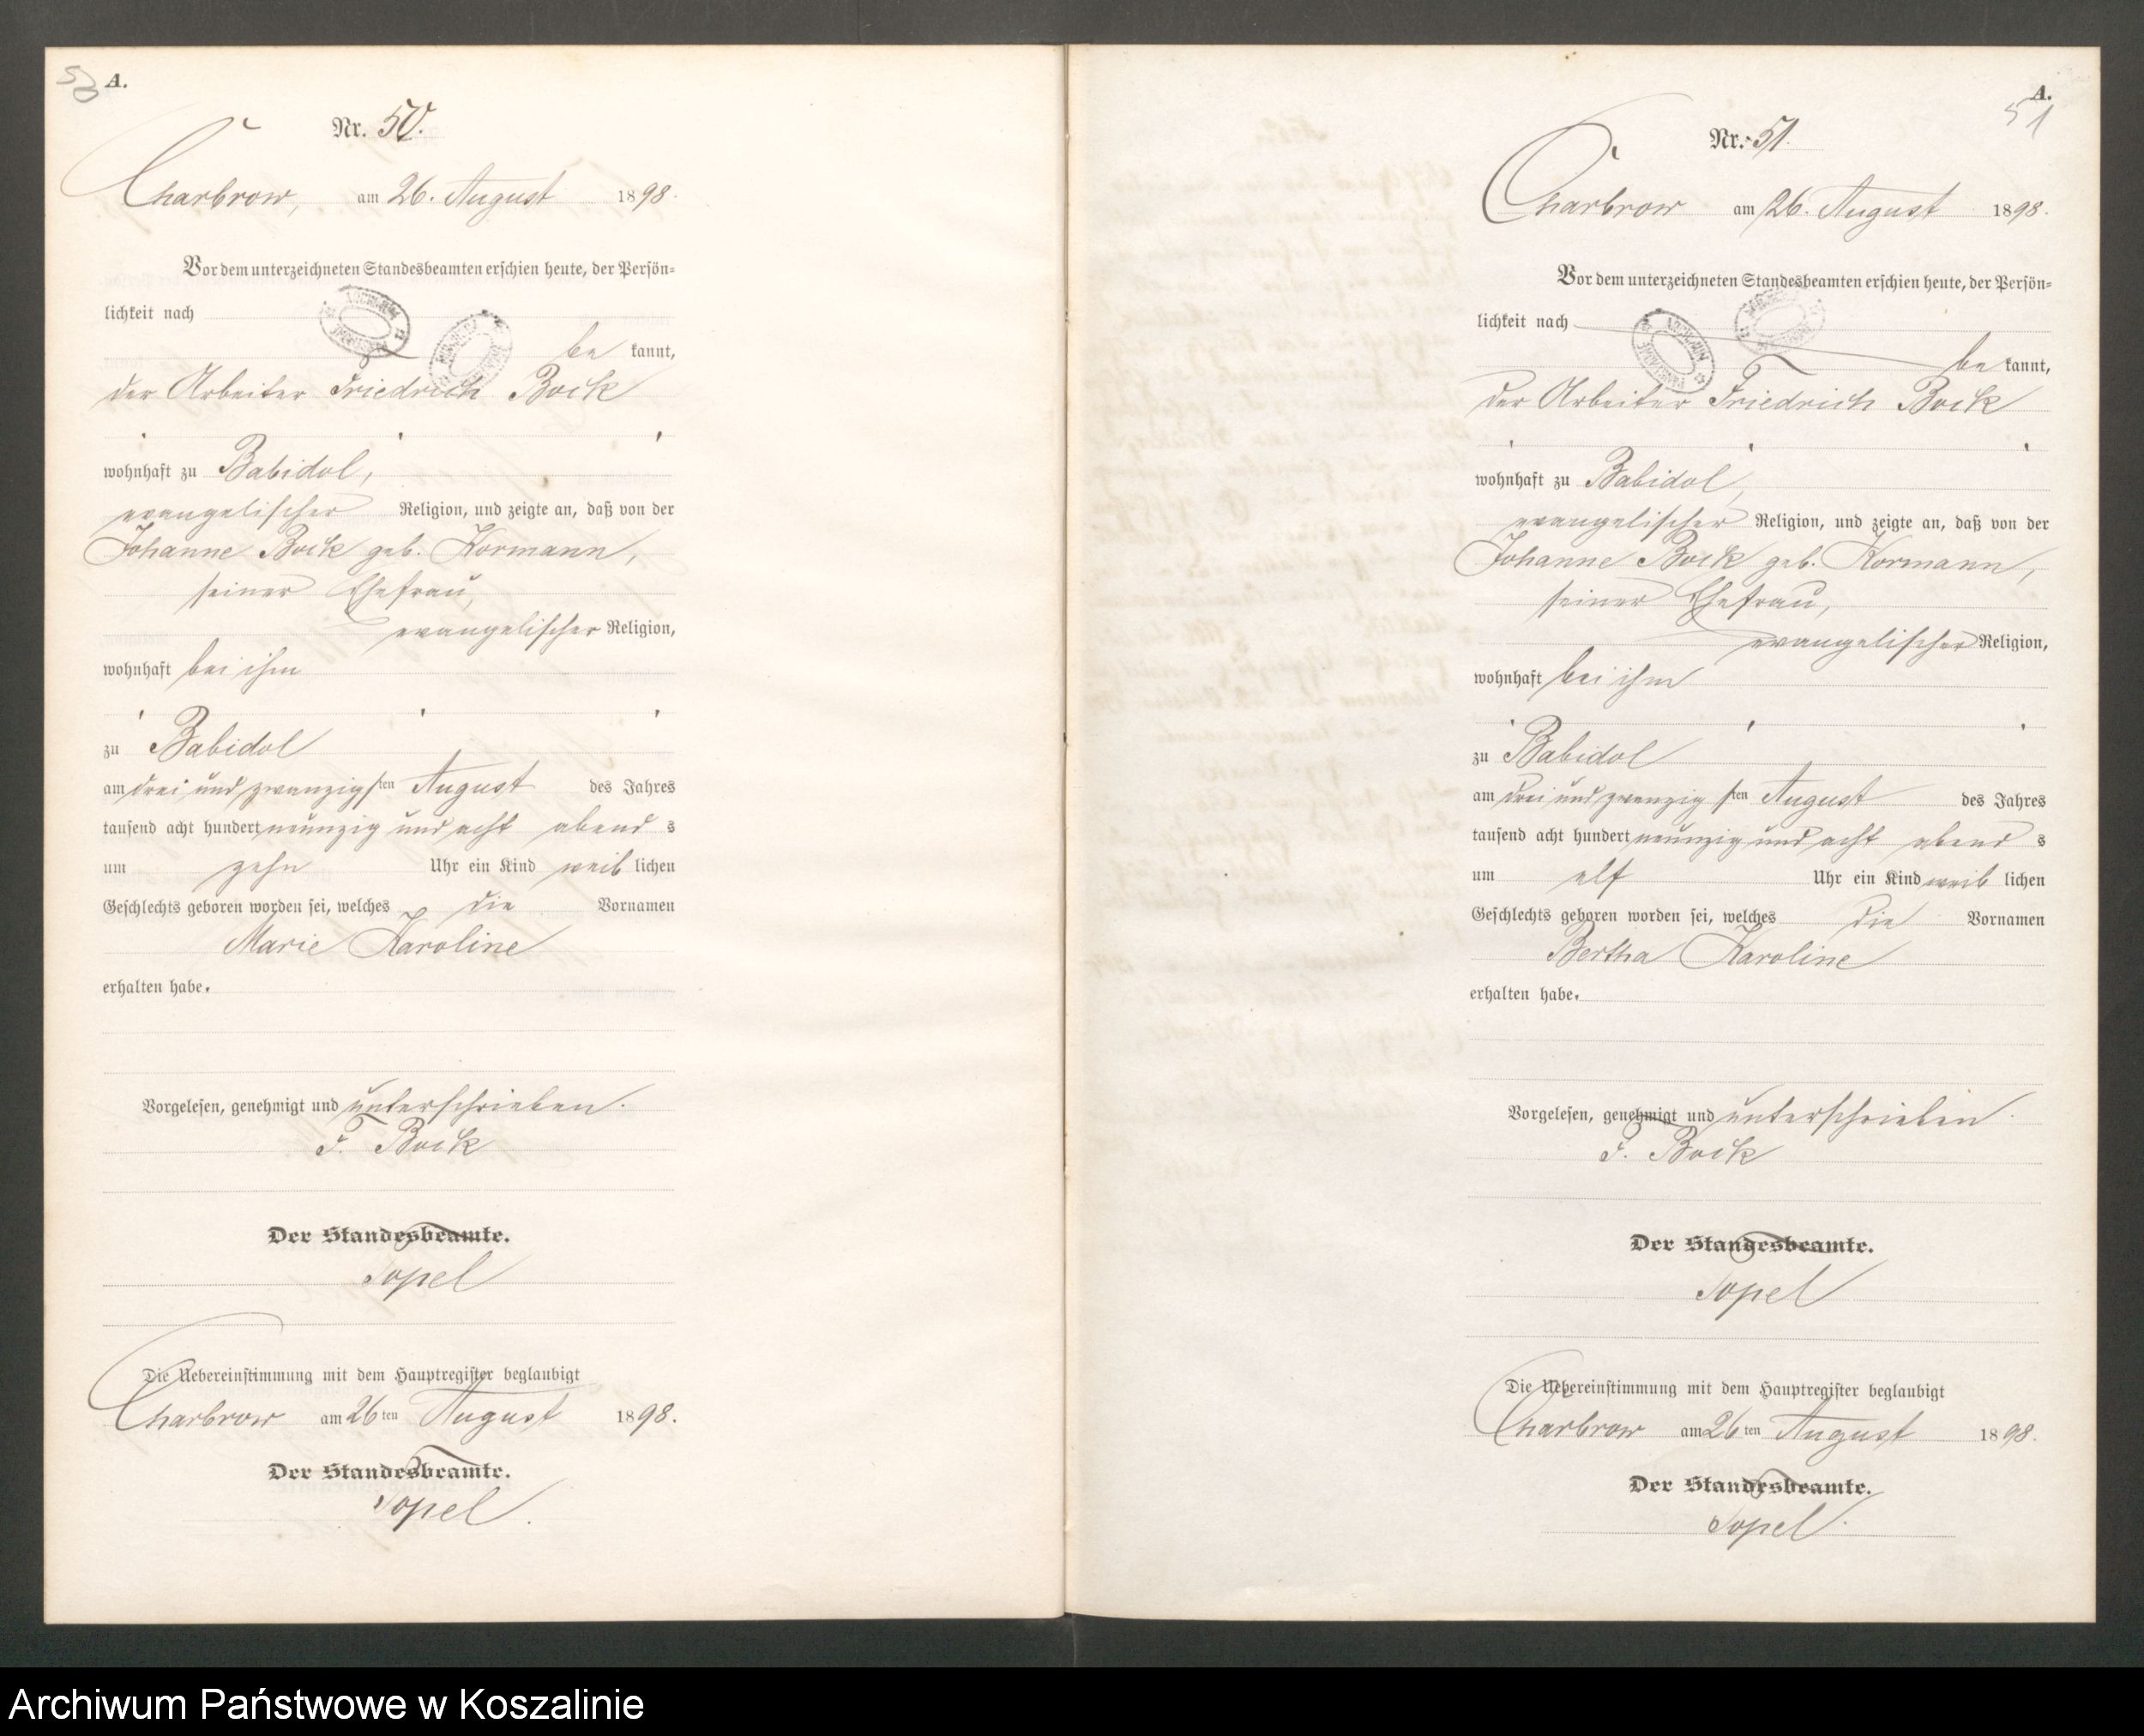 50
A.
Nr. 50.
Charbrow, am 26. August 1898.
Vor dem unterzeichneten Standesbeamten erschien heute, der Persön-
lichkeit nach
be kannt,
der Arbeiter Friedrich Bock
wohnhaft zu Babidol,
evangelischer Religion, und zeigte an, daß von der
Johanne Bock geb. Kormann,
seiner Ehefrau,
evangelischer Religion,
wohnhaft bei ihm
zu Babidol
am drei und zwanzigsten August des Jahres
tausend acht hundert neunzig und acht abend s
um zehn Uhr ein Kind weib lichen
Geschlechts geboren worden sei, welches die Vornamen
Marie Karoline
erhalten habe.
Vorgelesen, genehmigt und unterschrieben.
F. Bock
Der Standesbeamte.
Topel
Die Uebereinstimmung mit dem Hauptregister beglaubigt
Charbrow am 26ten August 1898.
Der Standesbeamte.
Topel.
A.
51
Nr. 51.
Charbrow am 26. August 1898.
Vor dem unterzeichneten Standesbeamten erschien heute, der Persön-
lichkeit nach
be kannt,
der Arbeiter Friedrich Bock
wohnhaft zu Babidol,
evangelischer Religion, und zeigte an, daß von der
Johanne Bock geb. Kormann,
seiner Ehefrau,
evangelischer Religion,
wohnhaft bei ihm
zu Babidol
am drei und zwanzig sten August des Jahres
tausend acht hundert neunzig und acht abend s
um elf Uhr ein Kind weib lichen
Geschlechts geboren worden sei, welches die Vornamen
Bertha Karoline
erhalten habe.
Vorgelesen, genehmigt und unterschrieben.
F. Bock
Der Standesbeamte.
Topel
Die Uebereinstimmung mit dem Hauptregister beglaubigt
Charbrow am 26ten August 1898.
Der Standesbeamte.
Topel.
Archiwum Państwowe w Koszalinie